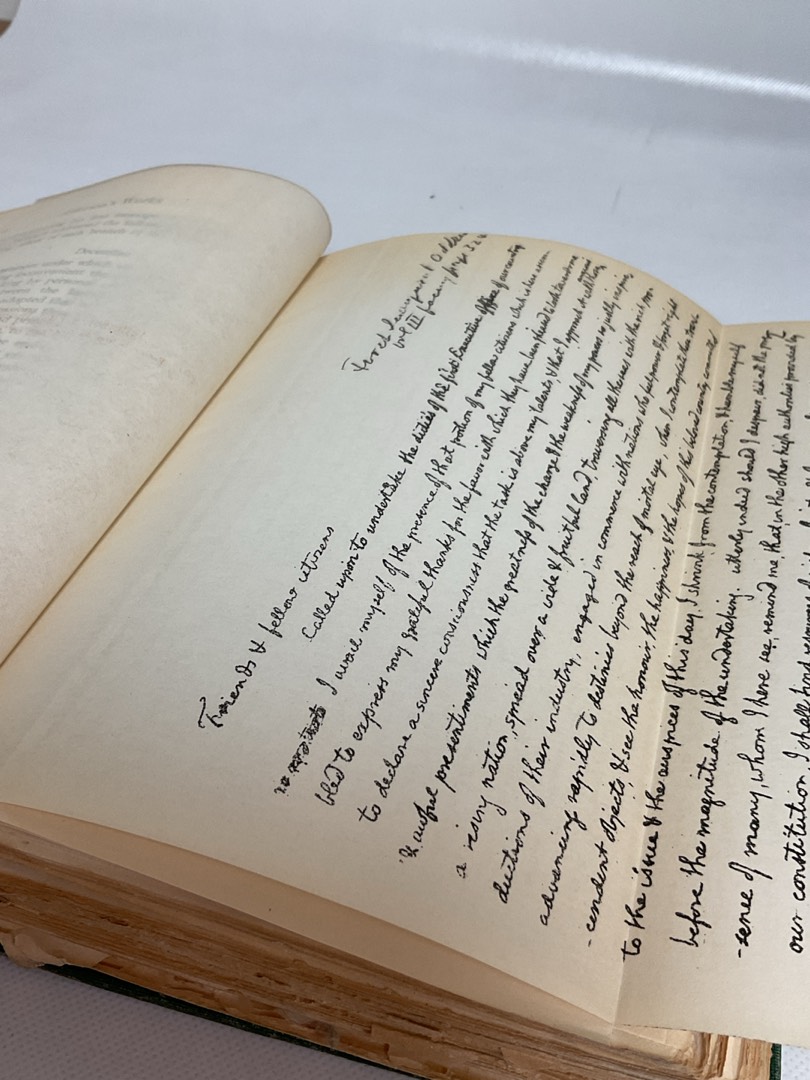 First Inaugural Address
Vol III facing page 320
Friends & fellow citizens
Called upon to undertake the duties of the first Executive Office of our country
I avail myself of the presence of that portion of my fellow citizens which is here assem
bled to express my grateful thanks for the favor with which they have been pleased to look towards me
to declare a sincere consciousness that the task is above my talents, & that I approach it with those anxious
& awful presentiments which the greatness of the charge & the weakness of my powers so justly inspire
a rising nation, spread over a wide & fruitful land, traversing all the seas with the rich pro-
ductions of their industry, engaged in commerce with nations who feel power & forget right
advancing rapidly to destinies beyond the reach of mortal eye, when I contemplate these trans
-cendent objects, & see the honour, the happiness, & the hopes of this beloved country committed
to the issue & the auspices of this day, I shrink from the contemplation, & humble myself
before the magnitude of the undertaking. utterly indeed should I despair, did not the pre
-sence of many, whom I here see, remind me, that in the other high authorities provided by
our constitution, I shall find